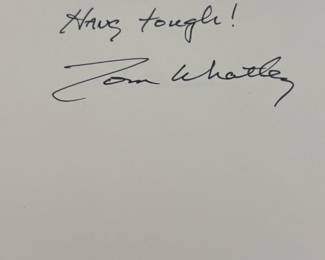 Hang tough!
Tom Whatley